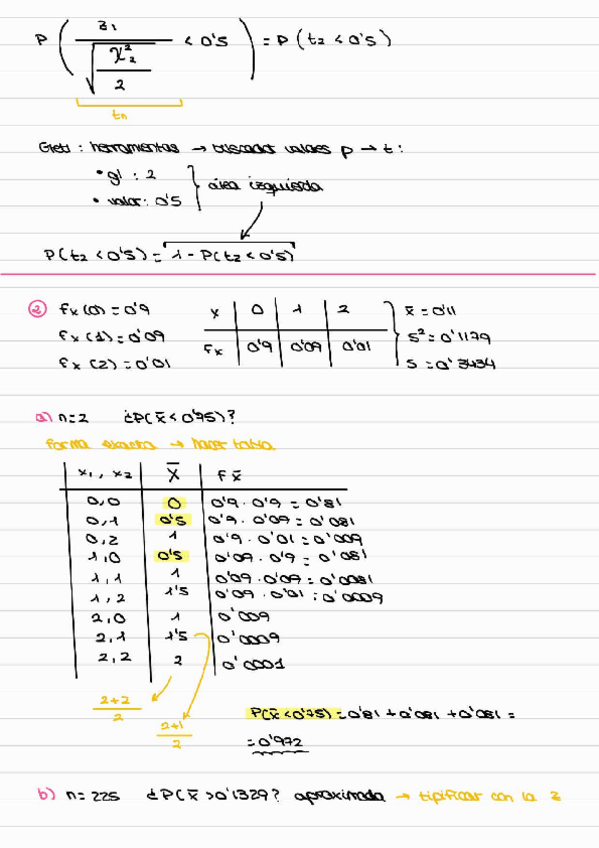 P ( Z₁ / √(χ²₂ / 2) < 0'5 ) = P (t₂ < 0'5)
tn
Gretl : herramientas → buscador valores p → t :
• gl : 2
• valor: 0'5
área izquierda
P(t₂ < 0'5) = 1 - P(t₂ < 0'5)
② fx (0) = 0'9
fx (1) = 0'09
fx (2) = 0'01
x 0 1 2
fx 0'9 0'09 0'01
x̄ = 0'11
S² = 0'1179
S = 0'3434
a) n=2 ¿P(x̄ < 0'75)?
forma exacta → hacer tabla
x₁, x₂ X̄ f x̄
0,0 0 0'9 · 0'9 = 0'81
0,1 0'5 0'9 · 0'09 = 0'081
0,2 1 0'9 · 0'01 = 0'009
1,0 0'5 0'09 · 0'9 = 0'081
1,1 1 0'09 · 0'09 = 0'0081
1,2 1'5 0'09 · 0'01 = 0'0009
2,0 1 0'009
2,1 1'5 0'0009
2,2 2 0'0001
2+2 / 2
2+1 / 2
P(x̄ < 0'75) = 0'81 + 0'081 + 0'081 =
= 0'972
b) n = 225 ¿P(x̄ > 0'1329? aproximada → tipificar con la z